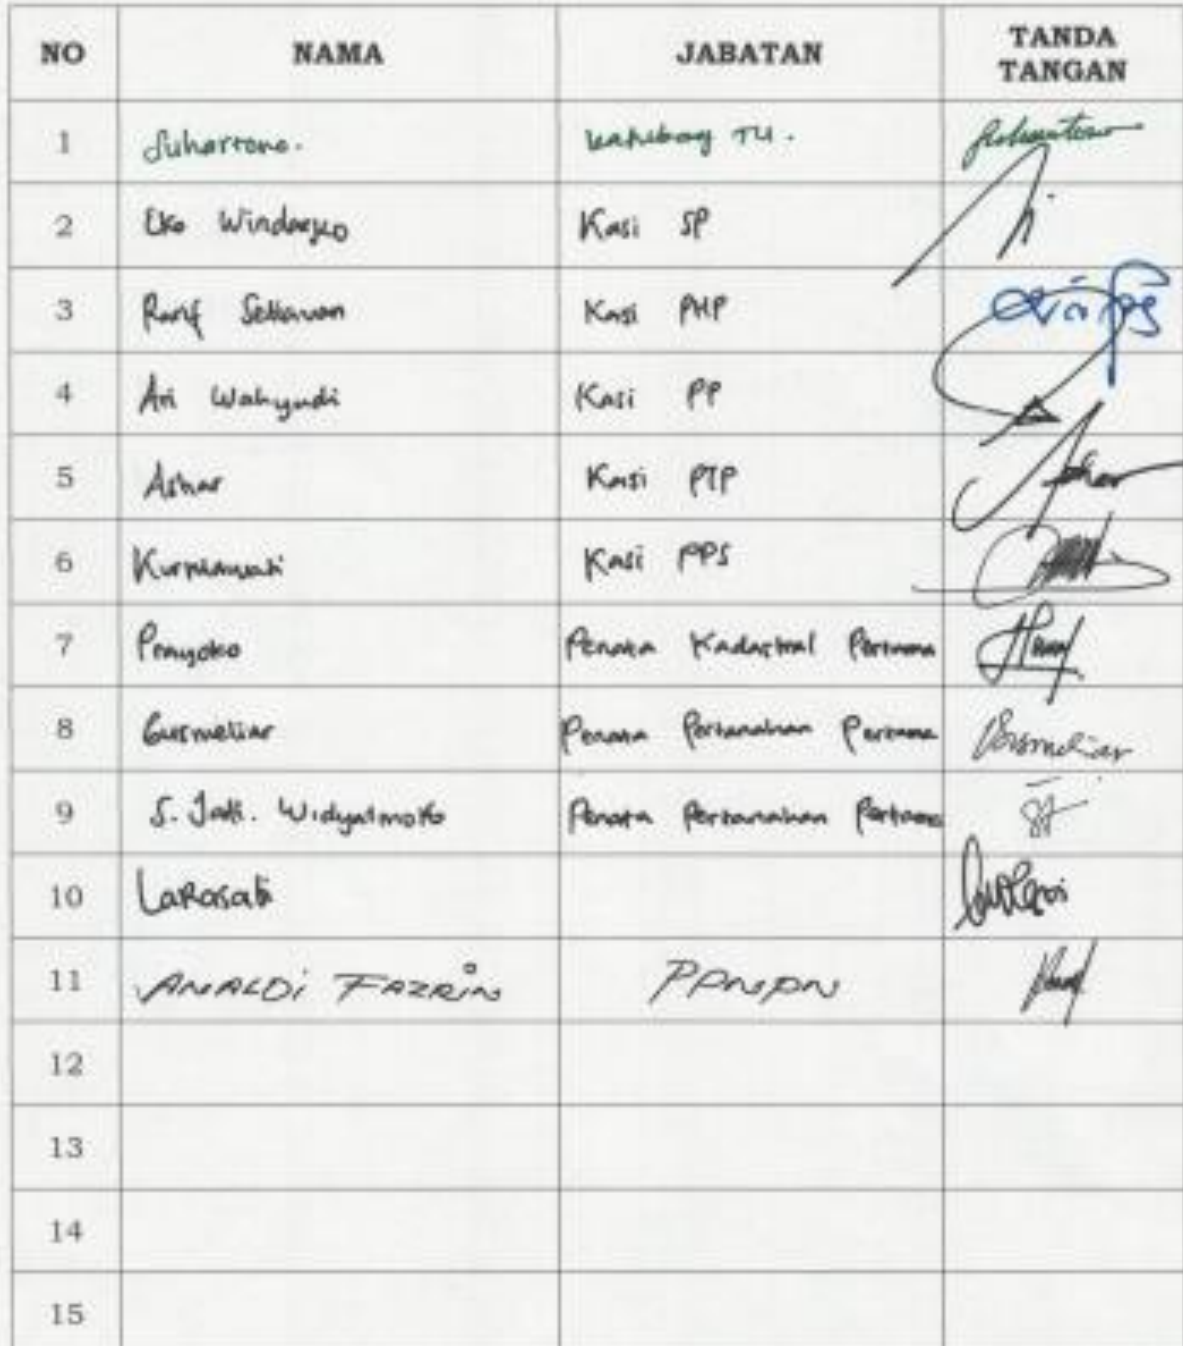 NO NAMA JABATAN TANDA TANGAN
1 Suhartono. Kasubbag TU. Suhartono
2 Eko Windarko Kasi SP
3 Setiawan Kasi PHP
4 Ari Wahyudi Kasi PP
5 Ashar Kasi PTP Ashar
6 Kurniawati Kasi PPS
7 Prayoko Penata Kadastral Pertama
8 Gusmeliar Penata Pertanahan Pertama Gusmeliar
9 S. Jati. Widyatmoko Penata Pertanahan Pertama
10 LaRasati
11 ANALDi FAZRiN PPNPN
12
13
14
15